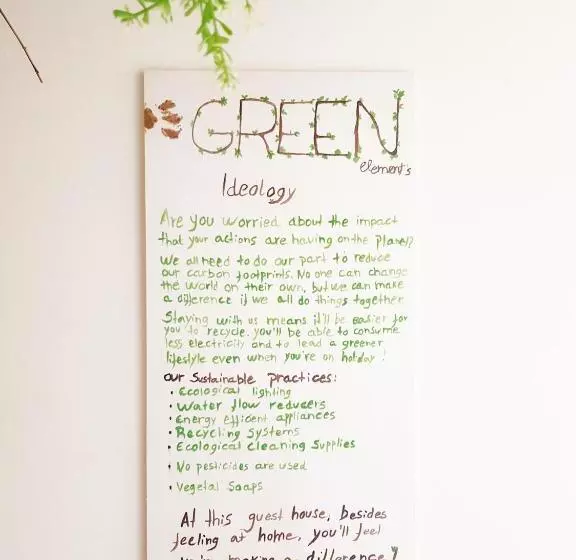 GREEN
element's
Ideology
Are you worried about the impact
that your actions are having on the planet?
We all need to do our part to reduce
our carbon footprints. No one can change
the world on their own, but we can make
a difference if we all do things together
Staying with us means it'll be easier for
you to recycle. you'll be able to consume
less electricity and to lead a greener
lifestyle even when you're on holiday!
our Sustainable practices:
• Ecological lighting
• Water flow reducers
• Energy efficent appliances
• Recycling Systems
• Ecological cleaning Supplies
• No pesticides are used
• Vegetal Soaps
At this guest house, besides
feeling at home, you'll feel
making a difference!